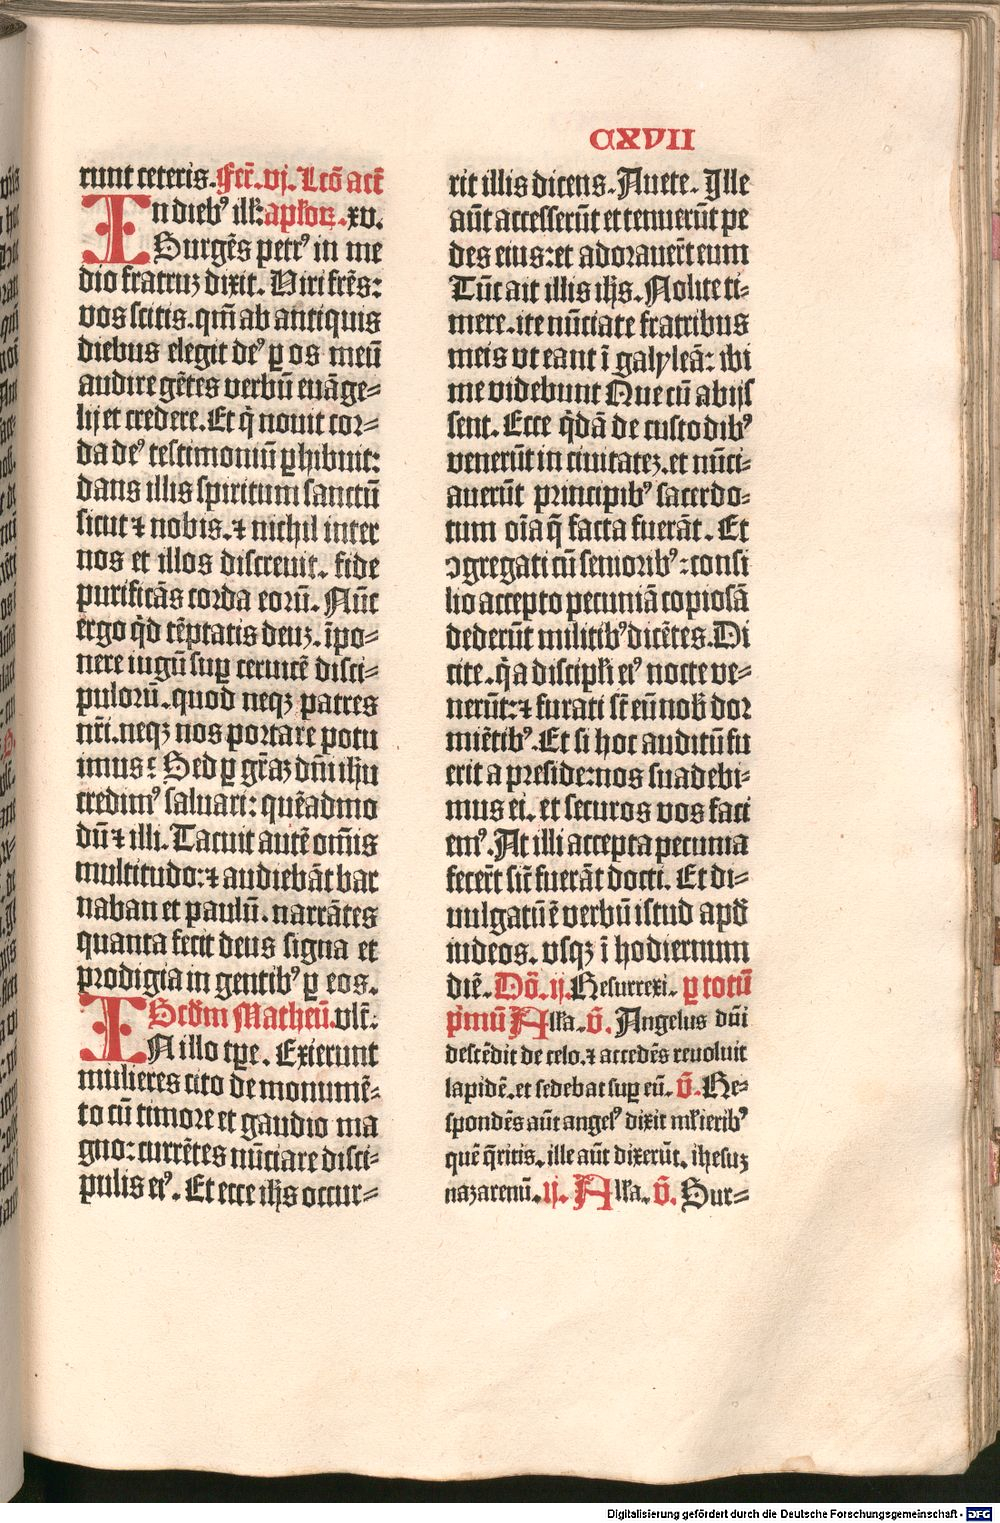 CXVII
runt ceteris. Fer̄. vj. Lcō act̄
In dieb⁹ ill: aplōꝝ. xv.
Surgēs petr⁹ in me
dio fratruꝫ dixit. Viri frēs:
vos scitis. qm̄ ab antiquis
diebus elegit de⁹ ꝑ os meū
audire gētes verbū euāge⸗
lij et credere. Et q̄ nouit cor⸗
da de⁹ testimoniū ꝑhibuit:
dans illis spiritum sanctū
sicut ⁊ nobis. ⁊ nichil inter
nos et illos discreuit. fide
purificās corda eorū. Nūc
ergo q̇d tēptatis deuꝫ. īpo⸗
nere iugū suꝑ ceruicē disci⸗
pulorū. quod neqꝫ patres
nr̄i. neqꝫ nos portare potu
imus: Sed ꝑ gr̄aꝫ dn̄i ihū
credim⁹ saluari: quēadmo
dū ⁊ illi. Tacuit autē om̄is
multitudo: ⁊ audiebāt bar
naban et paulū. narrātes
quanta fecit deus signa et
prodigia in gentib⁹ ꝑ eos.
Scd̄m Matheū. vlt̄:
IN illo tꝑe. Exierunt
mulieres cito de monumē⸗
to cū timore et gaudio ma
gno: currētes nūciare disci⸗
pulis ei⁹. Et ecce ihs̄ occur⸗
rit illis dicens. Auete. Ille
aūt accesserūt et tenuerūt pe
des eius: et adorauer̄t eum
Tūc ait illis ihs̄. Nolite ti⸗
mere. ite nūciate fratribus
meis vt eant ī galyleā: ibi
me videbunt Que cū abijs
sent. Ecce q̇dā de custodib⁹
venerūt in ciuitateꝫ. et nūci⸗
auerūt principib⁹ sacerdo⸗
tum oīa q̄ facta fuerāt. Et
ꝯgregati cū seniorib⁹: consi
lio accepto pecuniā copiosā
dederūt militib⁹ dicētes. Di
cite. q̇a discipli ei⁹ nocte ve⸗
nerūt: ⁊ furati st̄ eū nob̄ dor
miētib⁹. Et si hoc auditū fu
erit a preside: nos suadebi⸗
mus ei. et securos vos faci
em⁹. At illi accepta pecunia
fecer̄t sic̄ fuerāt docti. Et di⸗
uulgatū ē verbū istud apd̄
iudeos. vsqꝫ ī hodiernum
diē. Dō. ij. Resurrexi. ꝑ totū
pͥmū Alla. v̄. Angelus dn̄i
descēdit de celo. ⁊ accedēs reuoluit
lapidē. et sedebat suꝑ eū. v̄. Re⸗
spondēs aūt angel⁹ dixit mlierib⁹
quē q̄ritis. ille aūt dixerūt. ihesuꝫ
nazarenū. ij. Alla. v̄. Sur⸗
Digitalisierung gefördert durch die Deutsche Forschungsgemeinschaft - DFG